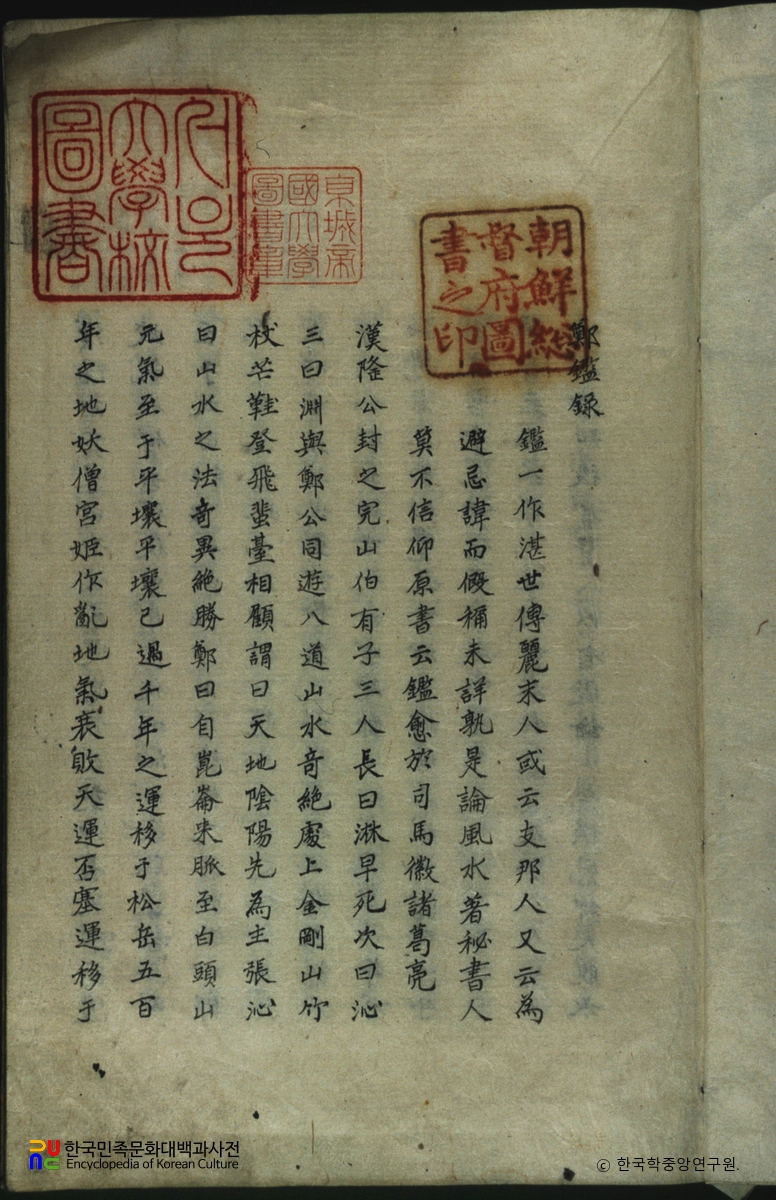 鄭鑑録
鑑一作湛世傳麗末人或云支那人又云為
避忌諱而假稱未詳孰是論風水著秘書人
莫不信仰原書云鑑愈於司馬徽諸葛亮
漢隆公封之完山伯有子三人長曰淋早死次曰沁
三曰淵與鄭公同遊八道山水奇絶處上金剛山竹
杖芒鞋登飛蜚臺相顧謂曰天地陰陽先為主張沁
曰山水之法奇異絶勝鄭曰自崑崙来脈至白頭山
元氣至于平壤平壤已過千年之運移于松岳五百
年之地妖僧宮姬作亂地氣衰敗天運否塞運移于
朝鮮総
督府圖
書之印
京城帝
國大學
圖書章
大學校
圖書
한국민족문화대백과사전
Encyclopedia of Korean Culture
ⓒ 한국학중앙연구원